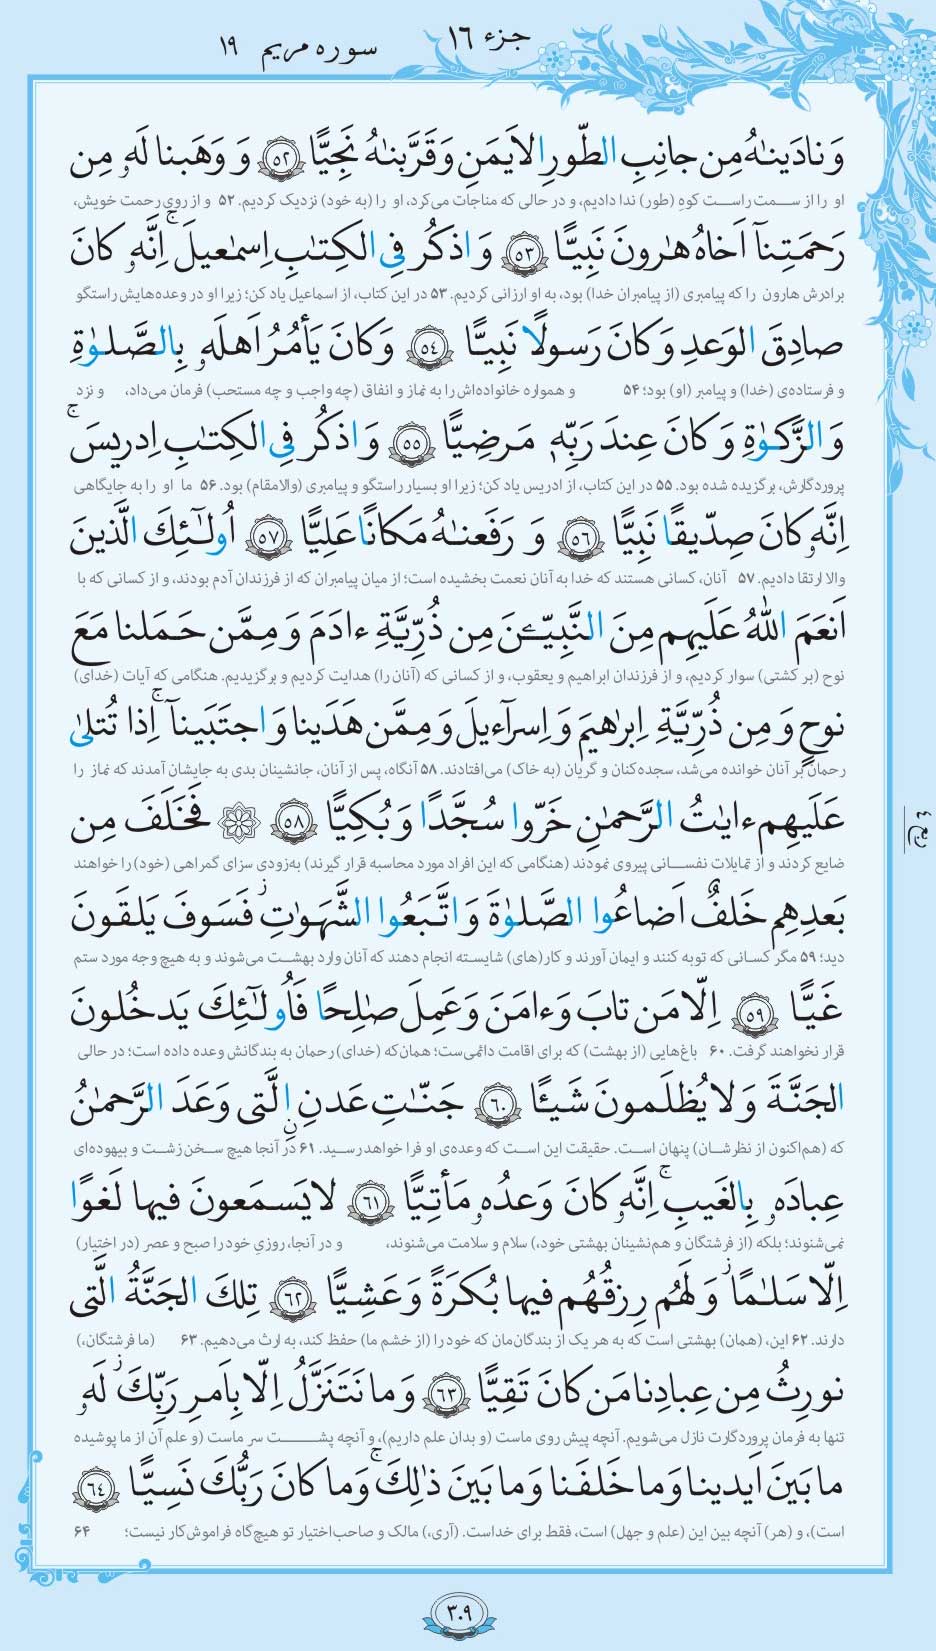 جزء ١٦
سوره مریم ١٩
وَنادَینٰهُ مِن جانِبِ الطّورِ الاَیمَنِ وَقَرَّبنٰهُ نَجِیًّا ﴿٥٢﴾ وَ وَهَبنا لَهٗ مِن
او را از سمت راست کوهِ (طور) ندا دادیم، و در حالی که مناجات می‌کرد، او را (به خود) نزدیک کردیم. ۵۲ و از رویِ رحمت خویش،
رَحمَتِنآ اَخاهُ هٰرونَ نَبِیًّا ﴿٥٣﴾ وَ اذکُر فِی الکِتٰبِ اِسمٰعیلَ ۚ اِنَّهٗ کانَ
برادرش هارون را که پیامبری (از پیامبران خدا) بود، به او ارزانی کردیم. ۵۳ در این کتاب، از اسماعیل یاد کن؛ زیرا او در وعده‌هایش راستگو
صادِقَ الوَعدِ وَکانَ رَسولًا نَبِیًّا ﴿٥٤﴾ وَکانَ یَأمُرُ اَهلَهٗ بِالصَّلوٰةِ
و فرستاده‌ی (خدا) و پیامبر (او) بود؛ ۵۴ و همواره خانواده‌اش را به نماز و انفاق (چه واجب و چه مستحب) فرمان می‌داد، و نزد
وَ الزَّکوٰةِ وَ کانَ عِندَ رَبِّهٖ مَرضِیًّا ﴿٥٥﴾ وَ اذکُر فِی الکِتٰبِ اِدریسَ ۚ
پروردگارش، برگزیده شده بود. ۵۵ در این کتاب، از ادریس یاد کن؛ زیرا او بسیار راستگو و پیامبری (والامقام) بود. ۵۶ ما او را به جایگاهی
اِنَّهٗ کانَ صِدّیقًا نَبِیًّا ﴿٥٦﴾ وَ رَفَعنٰهُ مَکانًا عَلِیًّا ﴿٥٧﴾ اُولٰٓئِكَ الَّذینَ
والا ارتقا دادیم. ۵۷ آنان، کسانی هستند که خدا به آنان نعمت بخشیده است؛ از میان پیامبران که از فرزندان آدم بودند، و از کسانی که با
اَنعَمَ اللّٰهُ عَلَیهِم مِنَ النَّبِیّـٖنَ مِن ذُرِّیَّةِ ءادَمَ وَ مِمَّن حَمَلنا مَعَ
نوح (بر کشتی) سوار کردیم، و از فرزندان ابراهیم و یعقوب، و از کسانی که (آنان را) هدایت کردیم و برگزیدیم. هنگامی که آیات (خدای)
نوحٍ وَ مِن ذُرِّیَّةِ اِبرٰهیمَ وَ اِسرآءیلَ وَ مِمَّن هَدَینا وَ اجتَبَینآ ۚ اِذا تُتلیٰ
رحمان بر آنان خوانده می‌شد، سجده‌کنان و گریان (به خاک) می‌افتادند. ۵۸ آنگاه، پس از آنان، جانشینان بدی به جایشان آمدند که نماز را
عَلَیهِم ءایٰتُ الرَّحمٰنِ خَرّوا سُجَّدًا وَ بُکِیًّا ﴿٥٨﴾ فَخَلَفَ مِن
ضایع کردند و از تمایلات نفسانی پیروی نمودند (هنگامی که این افراد مورد محاسبه قرار گیرند) به‌زودی سزای گمراهی (خود) را خواهند
ربع ٤
بَعدِهِم خَلفٌ اَضاعُوا الصَّلوٰةَ وَ اتَّبَعُوا الشَّهَوٰتِ ۖ فَسَوفَ یَلقَونَ
دید؛ ۵۹ مگر کسانی که توبه کنند و ایمان آورند و کار(های) شایسته انجام دهند که آنان وارد بهشت می‌شوند و به هیچ وجه مورد ستم
غَیًّا ﴿٥٩﴾ اِلّا مَن تابَ وَ ءامَنَ وَ عَمِلَ صٰلِحًا فَاُولٰٓئِكَ یَدخُلونَ
قرار نخواهند گرفت. ۶۰ باغ‌هایی (از بهشت) که برای اقامت دائمی‌ست؛ همان‌که (خدای) رحمان به بندگانش وعده داده است؛ در حالی
الجَنَّةَ وَ لا یُظلَمونَ شَیـًٔا ﴿٦٠﴾ جَنّٰتِ عَدنٍ الَّتی وَعَدَ الرَّحمٰنُ
که (هم‌اکنون از نظرشان) پنهان است. حقیقت این است که وعده‌ی او فرا خواهد رسید. ۶۱ در آنجا هیچ سخن زشت و بیهوده‌ای
عِبادَهٗ بِالغَیبِ ۚ اِنَّهٗ کانَ وَعدُهٗ مَأتِیًّا ﴿٦١﴾ لا یَسمَعونَ فیها لَغوًا
نمی‌شنوند؛ بلکه (از فرشتگان و هم‌نشینان بهشتی خود،) سلام و سلامت می‌شنوند، و در آنجا، روزیِ خود را صبح و عصر (در اختیار)
اِلّا سَلٰمًا ۖ وَ لَهُم رِزقُهُم فیها بُکرَةً وَ عَشِیًّا ﴿٦٢﴾ تِلكَ الجَنَّةُ الَّتی
دارند. ۶۲ این، (همان) بهشتی است که به هر یک از بندگان‌مان که خود را (از خشم ما) حفظ کند، به ارث می‌دهیم. ۶۳ (ما فرشتگان،)
نورِثُ مِن عِبادِنا مَن کانَ تَقِیًّا ﴿٦٣﴾ وَ ما نَتَنَزَّلُ اِلّا بِاَمرِ رَبِّكَ ۖ لَهٗ
تنها به فرمان پروردگارت نازل می‌شویم. آنچه پیش روی ماست (و بدان علم داریم)، و آنچه پشت سر ماست (و علم آن از ما پوشیده
ما بَینَ اَیدینا وَ ما خَلفَنا وَ ما بَینَ ذٰلِكَ ۚ وَ ما کانَ رَبُّكَ نَسِیًّا ﴿٦٤﴾
است)، و (هر) آنچه بین این (علم و جهل) است، فقط برای خداست. (آری،) مالک و صاحب‌اختیار تو هیچ‌گاه فراموش‌کار نیست؛ ۶۴
٣٠٩